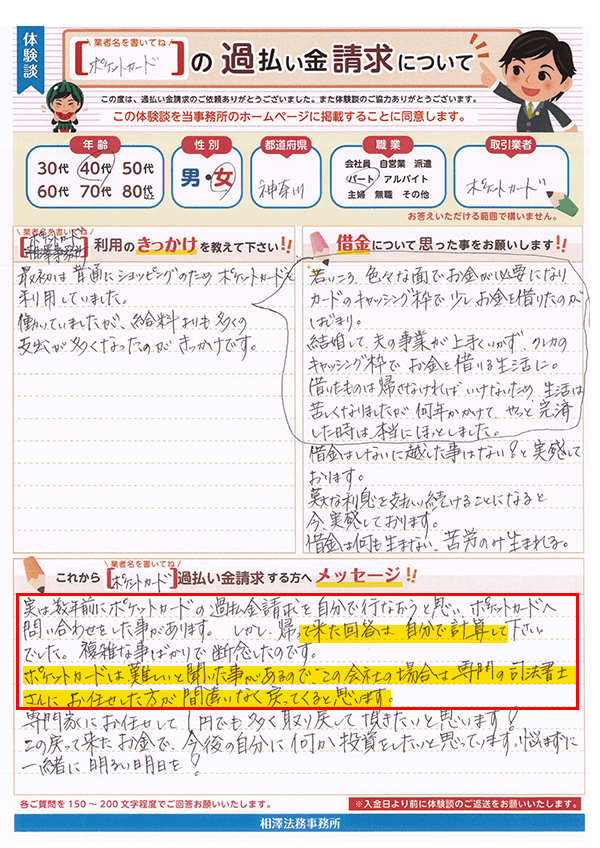 体験談
業者名を書いてね
[ポケットカード]の過払い金請求について
この度は、過払い金請求のご依頼ありがとうございました。また体験談のご協力ありがとうございます。
この体験談を当事務所のホームページに掲載することに同意します。
年齢
30代 40代 50代
60代 70代 80代以上
性別
男・女
都道府県
神奈川
職業
会社員 自営業 派遣
パート アルバイト
主婦 無職 その他
取引業者
ポケットカード
お答えいただける範囲で構いません。
業者名を書いてね
[ポケットカード]利用のきっかけを教えて下さい!!
最初は普通にショッピングのためポケットカードを
利用していました。
働いていましたが、給料よりも多くの
支出が多くなったのがきっかけです。
借金について思った事をお願いします!!
若いころ、色々な面でお金が必要になり
カードのキャッシング枠で少しお金を借りたのが
はじまり。
結婚して、夫の事業が上手くいかず、クレカの
キャッシング枠でお金を借りる生活に。
借りたものは帰さなければいけないため、生活は
苦しくなりましたが何年かかけて、やっと完済
した時は、本当にほっとしました。
借金はしないに越した事はない!と実感して
おります。
莫大な利息を支払い続けることになると
今、実感しております。
借金は何も生まない、苦労のみ生まれる。
業者名を書いてね
これから[ポケットカード]過払い金請求する方へメッセージ!!
実は数年前にポケットカードの過払金請求を自分で行なおうと思い、ポケットカードへ
問い合わせをした事があります。しかし、帰って来た回答は、自分で計算して下さい
でした。複雑な事ばかりで断念したのです。
ポケットカードは難しいと聞いた事があるので、この会社の場合は、専門の司法書士
さんにお任せした方が間違いなく戻ってくると思います。
専門家にお任せして1円でも多く取り戻して頂きたいと思います!
この戻って来たお金で、今後の自分に何か投資をしたいと思っています。悩まずに
一緒に明るい明日を!
各ご質問を150~200文字程度でご回答お願いいたします。
※入金日より前に体験談のご返送をお願いいたします。
相澤法務事務所